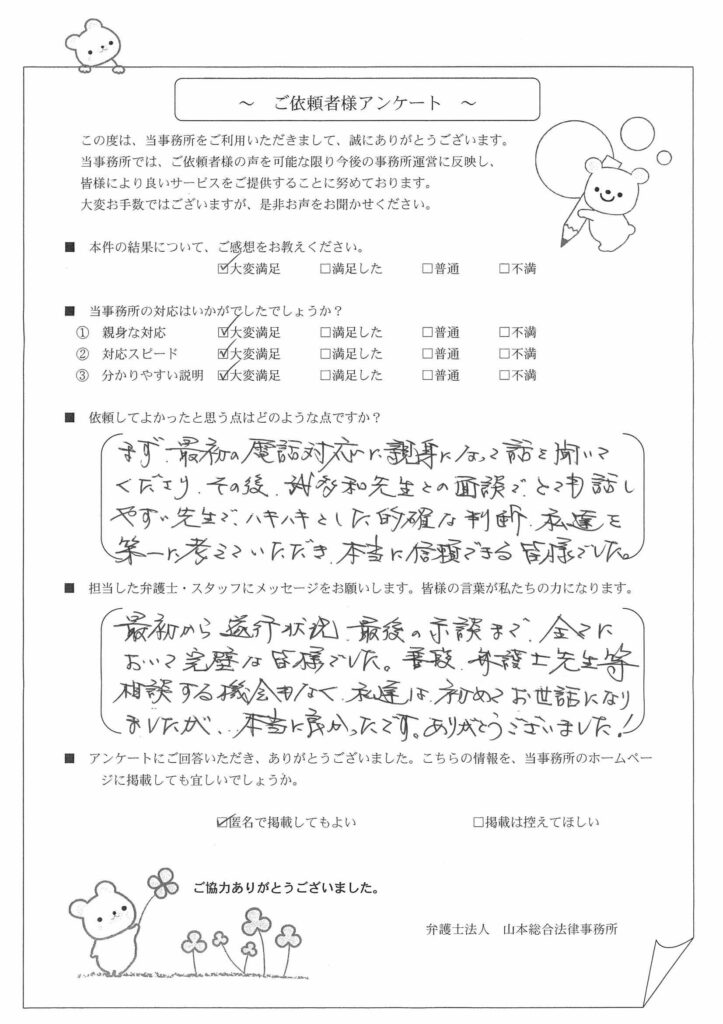 ～　ご依頼者様アンケート　～
この度は、当事務所をご利用いただきまして、誠にありがとうございます。
当事務所では、ご依頼者様の声を可能な限り今後の事務所運営に反映し、
皆様により良いサービスをご提供することに努めております。
大変お手数ではございますが、是非お声をお聞かせください。
■　本件の結果について、ご感想をお教えください。
☑大変満足　□満足した　□普通　□不満
■　当事務所の対応はいかがでしたでしょうか？
①　親身な対応　☑大変満足　□満足した　□普通　□不満
②　対応スピード　☑大変満足　□満足した　□普通　□不満
③　分かりやすい説明　☑大変満足　□満足した　□普通　□不満
■　依頼してよかったと思う点はどのような点ですか？
まず、最初の電話対応に親身になって話を聞いて
くださり、その後、先生との面談で、とても話し
やすい先生で、ハキハキとした的確な判断、私達を
第一に考えていただき、本当に信頼できる皆様でした。
■　担当した弁護士・スタッフにメッセージをお願いします。皆様の言葉が私たちの力になります。
最初から進行状況、最後の示談まで、全てに
おいて完璧な皆様でした。普段、弁護士先生等
相談する機会もなく、私達は、初めてお世話になり
ましたが、、本当に良かったです。ありがとうございました！
■　アンケートにご回答いただき、ありがとうございました。こちらの情報を、当事務所のホームペー
ジに掲載しても宜しいでしょうか。
☑匿名で掲載してもよい　□掲載は控えてほしい
ご協力ありがとうございました。
弁護士法人　山本総合法律事務所